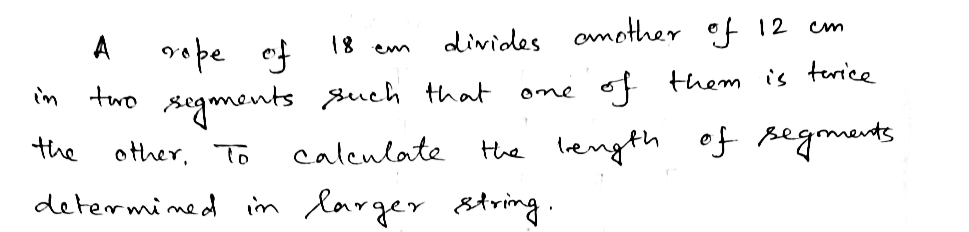 A rope of 18 cm divides another of 12 cm
in two segments such that one of them is twice
the other, To calculate the length of segments
determined in larger string.